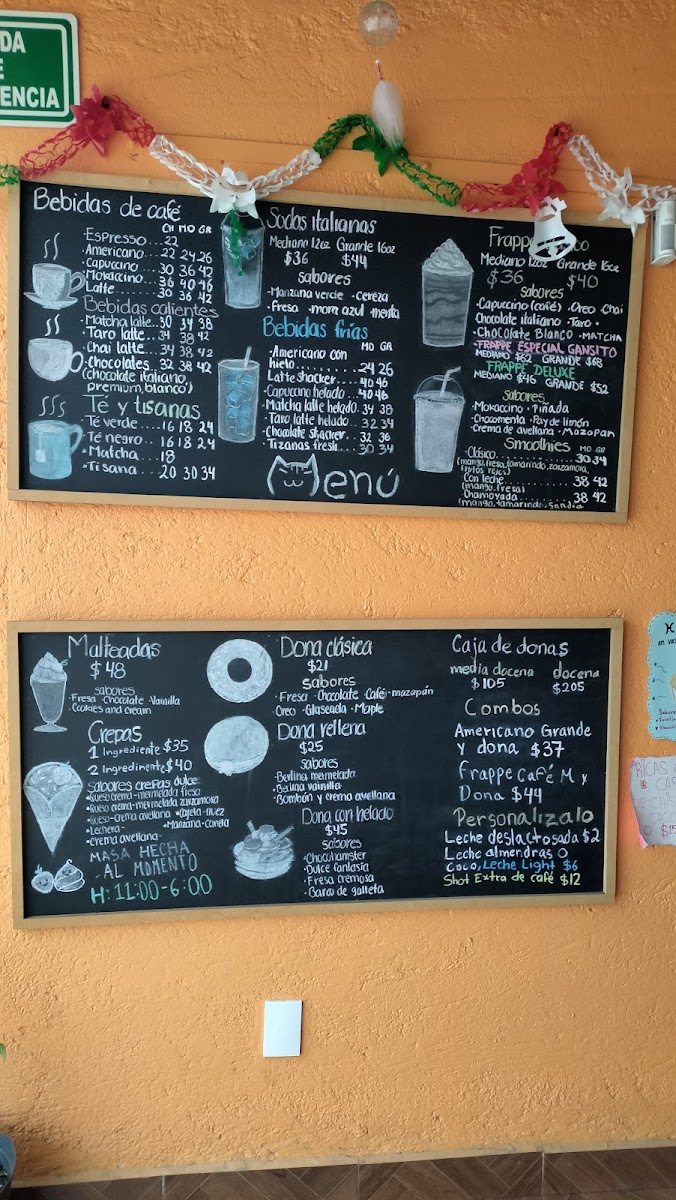 DA
E
ENCIA
Bebidas de café
CH MO GR
Espresso 22
·Americano 22 24 26
·capuccino 30 36 42
·Mokaccino 36 40 46
·Latte 30 36 42
Bebidas calientes
·Matcha latte 30 34 38
·Taro latte 34 38 42
·Chai latte 34 38 42
·Chocolates 32 38 42
(chocolate italiano,
premium, blanco)
Té y tisanas
·Té verde 16 18 24
·Té negro 16 18 24
·Matcha 18
·Tisana 20 30 34
Sodas italianas
Mediano 12oz Grande 16oz
$36 $44
sabores
·Manzana verde ·cereza
·Fresa ·mora azul ·menta
Bebidas frias
MO GR
·Americano con
hielo 24 26
·Latte shacker 40 46
·Capuccino helado 40 46
·Matcha latte helado 34 38
·Taro latte helado 32 34
·Chocolate shacker 32 36
·Tizanas fresh 30 34
Menú
Frappe
Mediano 12oz Grande 16oz
$36 $40
sabores
·Capuccino (café) ·Oreo ·Chai
Chocolate italiano ·Taro ·
·Chocolate Blanco ·MATCHA
·FRAPPE ESPECIAL GANSITO
MEDIANO $62 GRANDE $68
FRAPPE DELUXE
MEDIANO $46 GRANDE $52
sabores
·Mokaccino ·Piñada
·Chocomenta ·Pay de limón
·Crema de avellana ·Mazapan
Smoothies
MO GR
·Clásico 30 34
(mango, fresa, tamarindo, zarzamora,
frutos rojos)
Con leche 38 42
(mango, fresa)
Chamoyada 38 42
(mango, tamarindo, sandia
Malteadas
$48
sabores
·Fresa ·Chocolate ·Vainilla
·Cookies and cream
Crepas
1 Ingrediente $35
2 Ingredinente $40
sabores crepas dulce
·Queso crema-mermelada fresa
·Queso crema-mermelada zarzamora
·Queso-crema avellana ·Cajeta-nuez
·Lechera- ·Manzana-Canela
·crema avellana-
MASA HECHA
AL MOMENTO
H: 11:00-6:00
Dona clásica
$21
sabores
·Fresa ·Chocolate ·Café ·mazapán
Oreo ·Glaseada ·Maple
Dona rellena
$25
sabores
·Berlina mermelada
·Berlina vainilla
·Bombón y crema avellana
Dona con helado
$45
sabores
·Chocohamster
·Dulce fantasía
·Fresa cremosa
·Barra de galleta
Caja de donas
media docena docena
$105 $205
Combos
Americano Grande
y dona $37
Frappe café M y
Dona $44
Personalizalo
Leche deslactosada $2
Leche almendras o
coco, Leche Light $6
Shot Extra de café $12